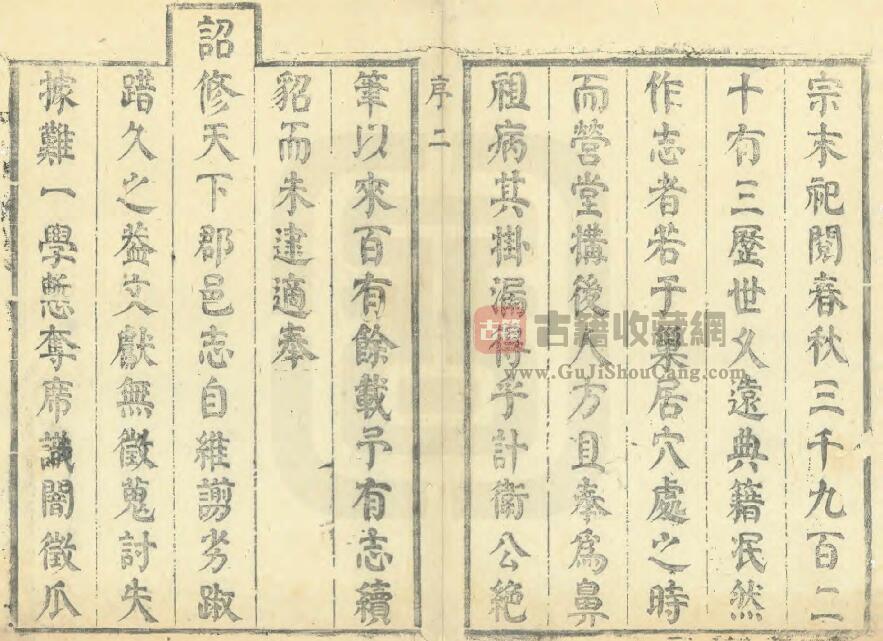 宗末祀閱春秋三千九百二
十有三歷世久遠典籍泯然
作志者若于巢居穴處之時
而營堂構後人方且奉爲鼻
祖病其掛漏得乎計衛公絶
序二
筆以來百有餘載予有志續
貂而未建適奉
詔修天下郡邑志自維謭劣踧
踖久之益文獻無徵蒐討失
據難一學慙奪席識闇徵爪
古籍
古籍收藏網
www.GuJiShouCang.com